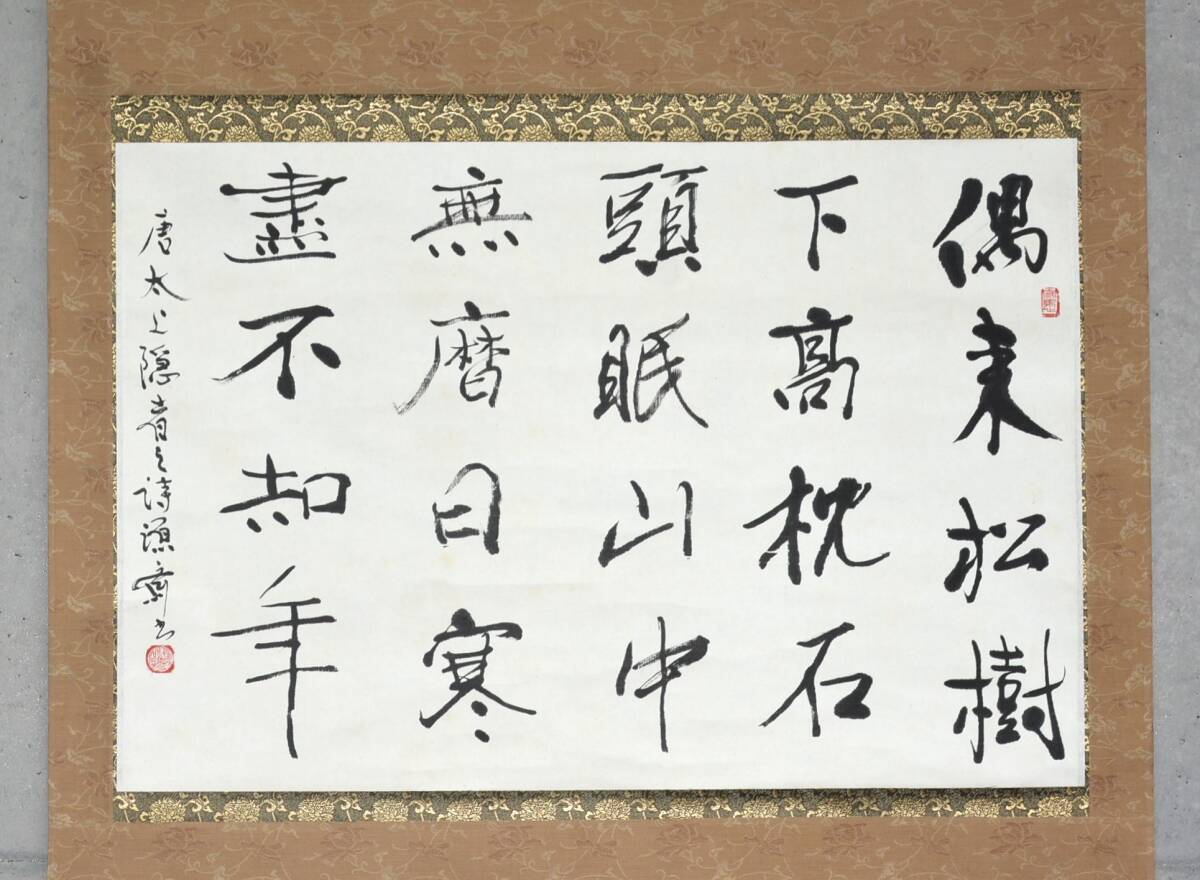 偶来松樹
下高枕石
頭眠山中
無暦日寒
盡不知年
唐太上隠者之詩 源齋書